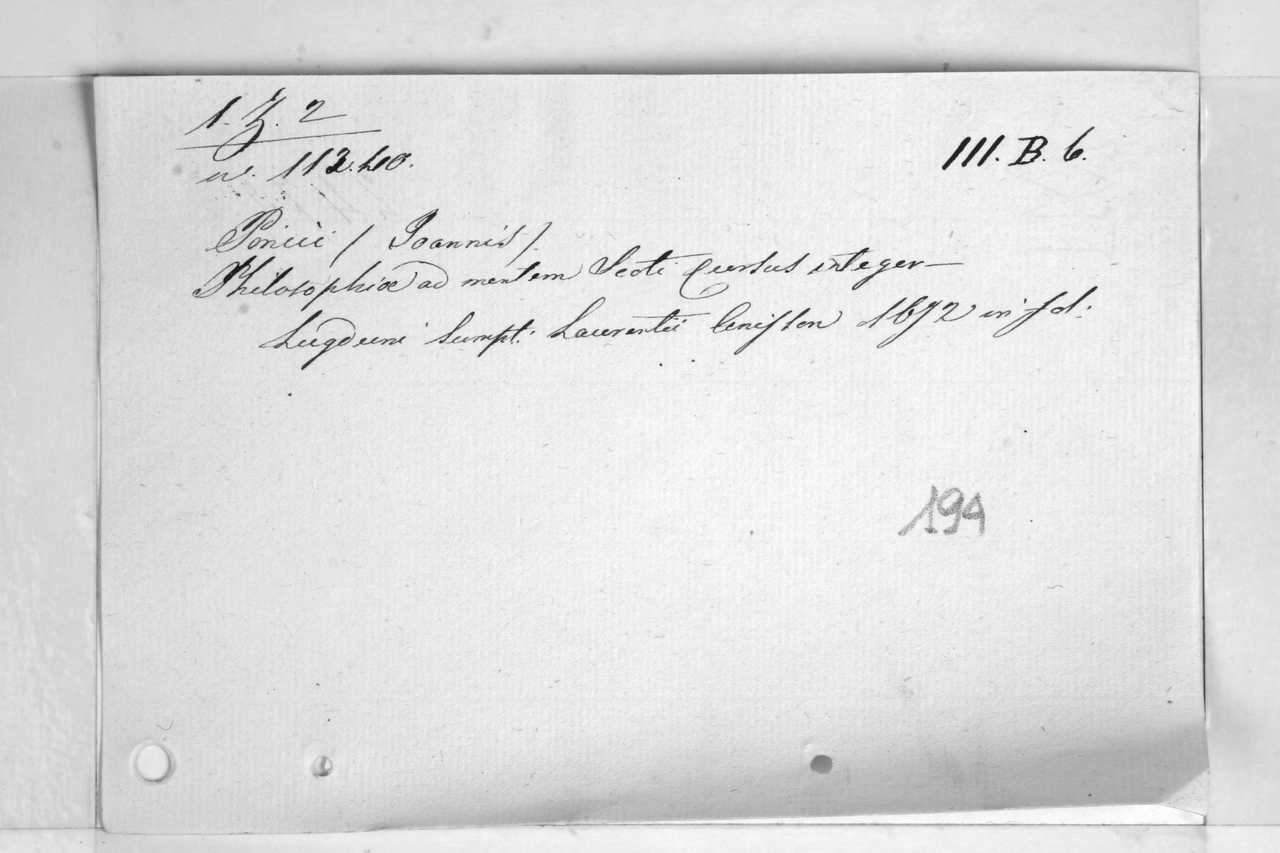 1. Z. 2
III. B. 6.
w. 113.40.
Poncii / Joannis /.
Philosophiæ ad mentem Scoti Cursus integer—
Lugduni Sumpt: Laurentii Anisson 1672 in fol:
194